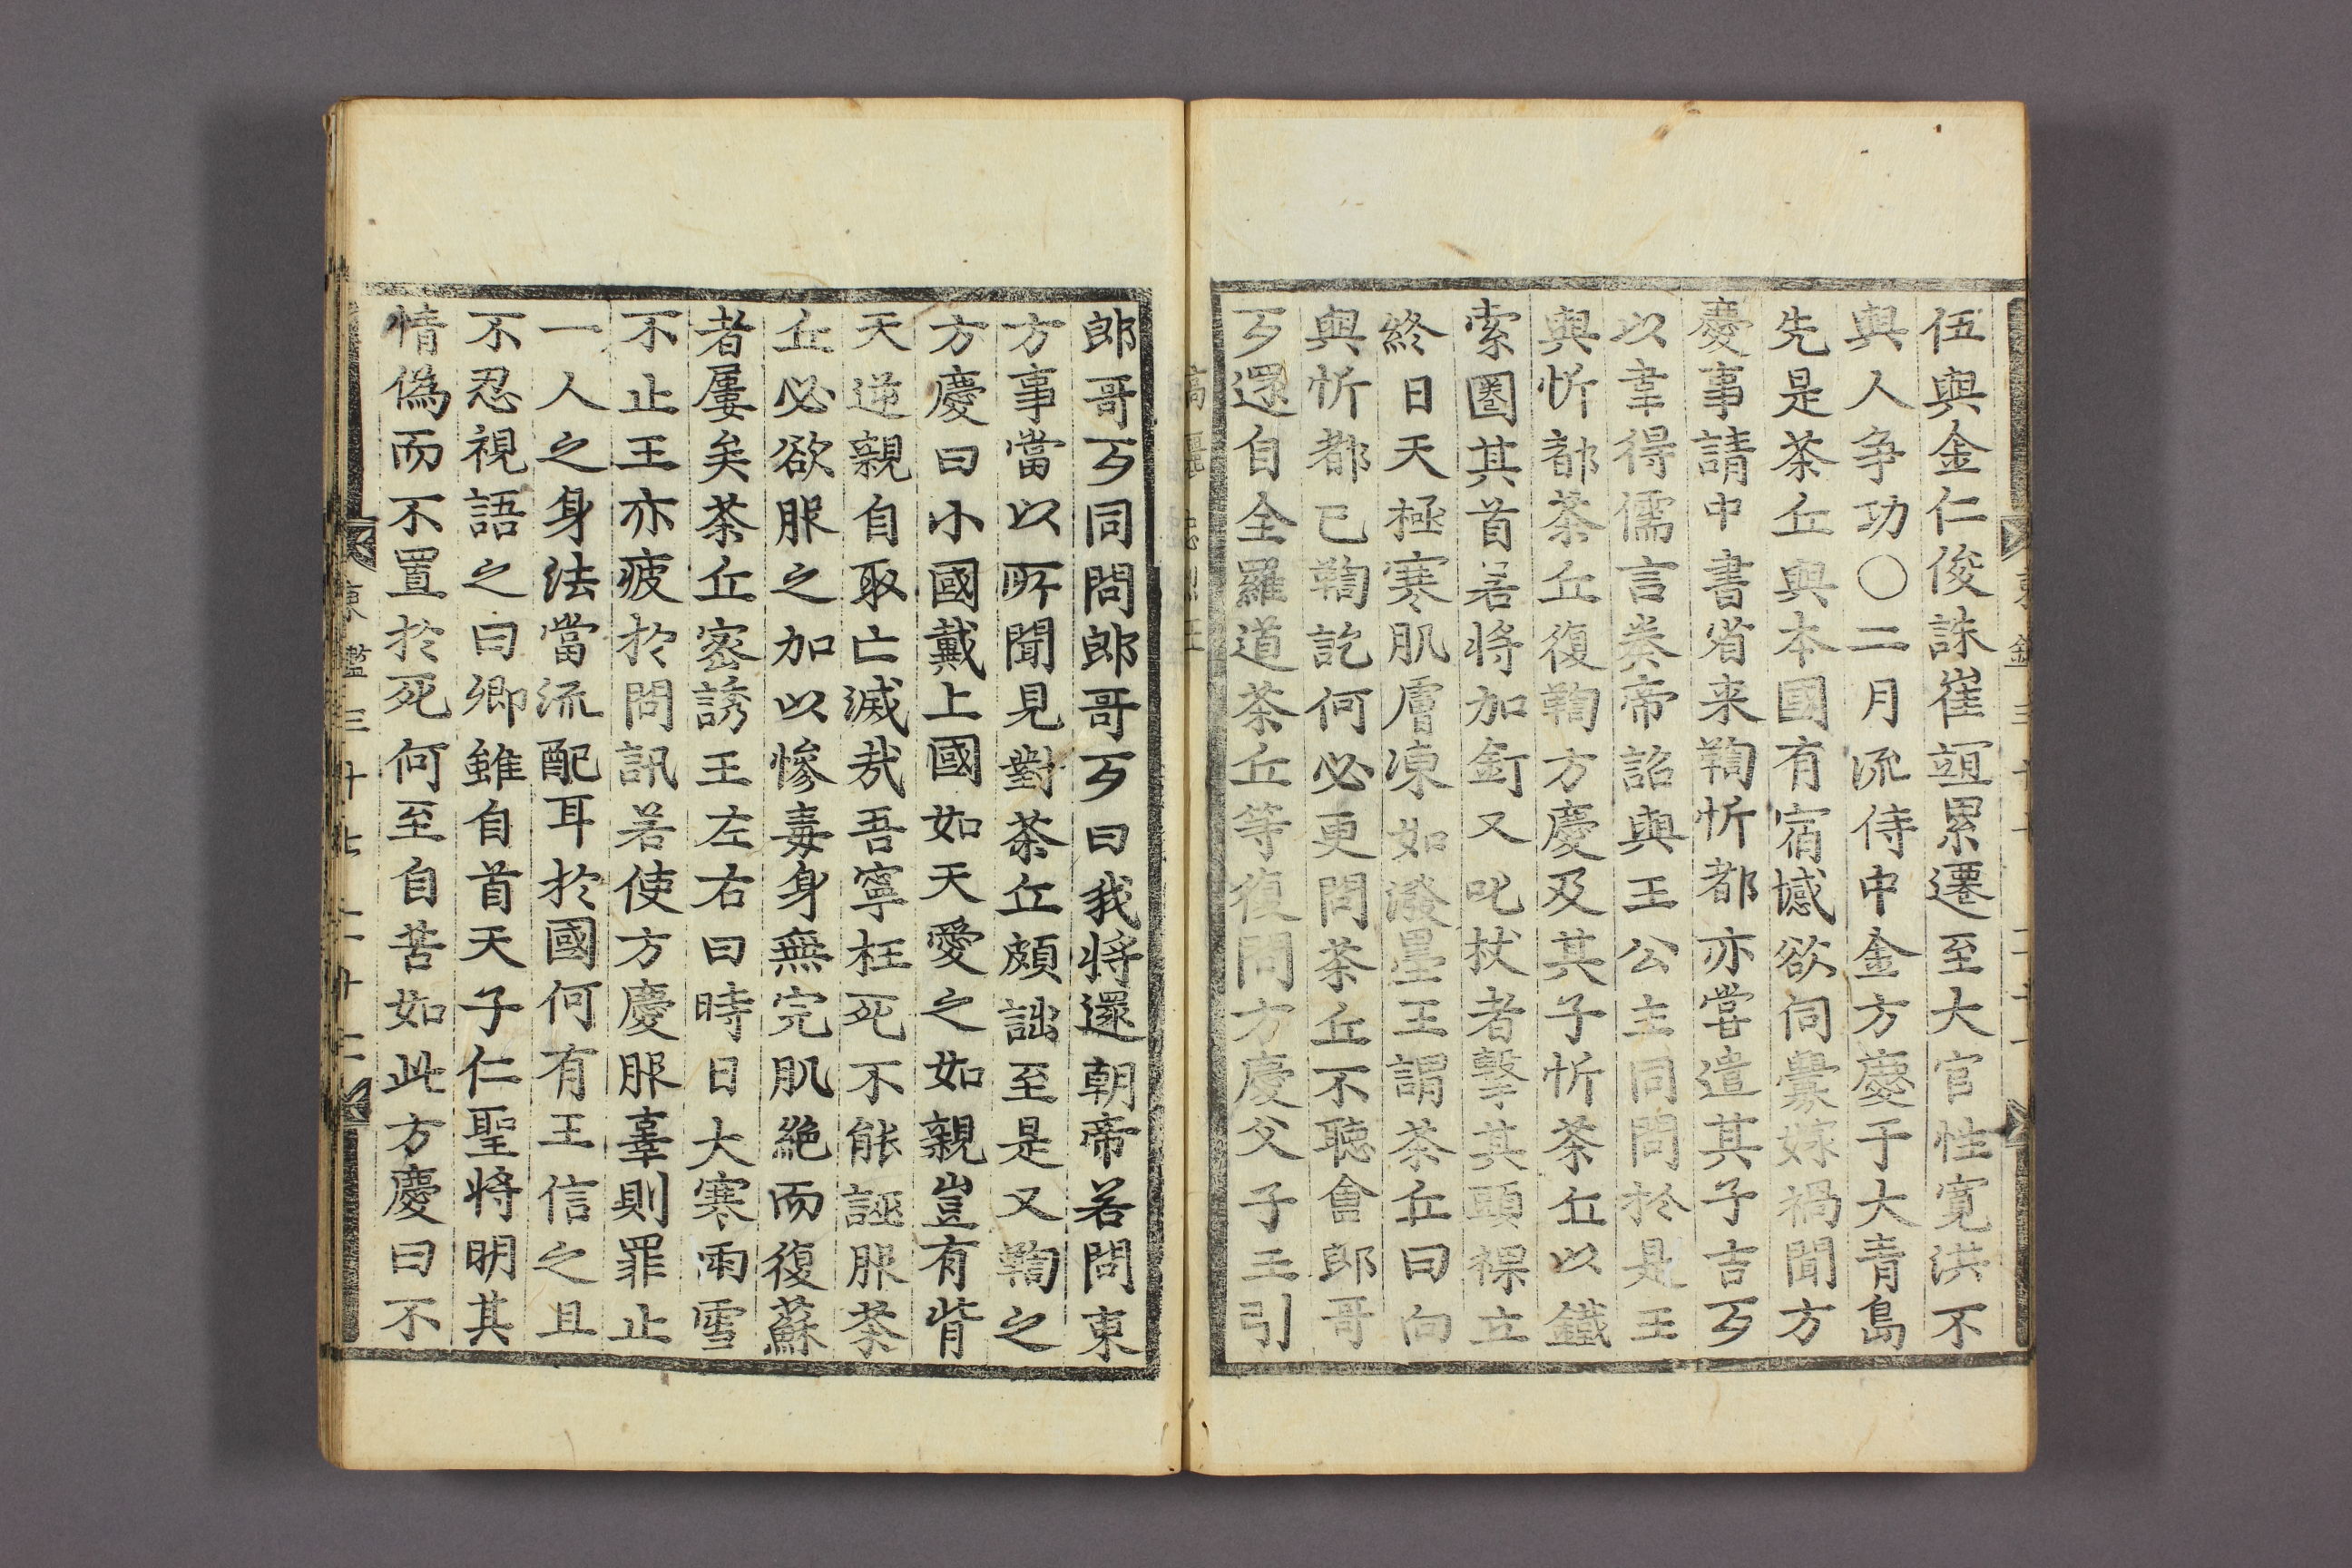 伍與金仁俊誅崔竩累遷至大官性寬洪不
與人爭功〇二月流侍中金方慶于大青島
先是茶丘與本國有宿憾欲伺釁嫁禍聞方
慶事請中書省来鞫忻都亦嘗遣其子吉丂
以韋得儒言奏帝詔與王公主同問於是王
與忻都茶丘復鞫方慶及其子忻茶丘以鐵
索圈其首若將加釘又叱杖者擊其頭裸立
終日天極寒肌膚凍如潑墨王謂茶丘曰向
與忻都已鞫訖何必更問茶丘不聽會郎哥
丂還自全羅道茶丘等復問方慶父子王引
郎哥丂同問郎哥丂曰我將還朝帝若問東
方事當以所聞見對茶丘頗詘至是又鞫之
方慶曰小國戴上國如天愛之如親豈有背
天逆親自取亡滅㢤吾寧枉死不能誣服茶
丘必欲服之加以慘毒身無完肌絶而復蘇
者屢矣茶丘密誘王左右曰時日大寒雨雪
不止王亦疲於問訊若使方慶服辜則罪止
一人之身法當流配耳於國何有王信之且
不忍視語之曰卿雖自首天子仁聖將明其
情偽而不置於死何至自苦如此方慶曰不
東鑑三十七 二十二